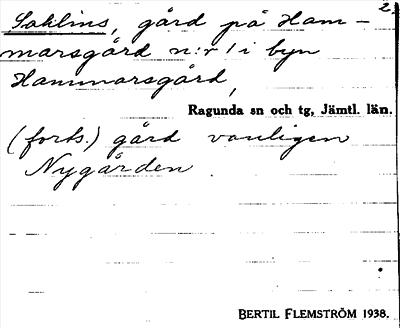 2.
Sahlins, gård på Ham-
marsgård n:r 1 i byn
Hammarsgård,
Ragunda sn och tg, Jämtl. län.
(forts.) gård vanligen
Nygården
BERTIL FLEMSTRÖM 1938.